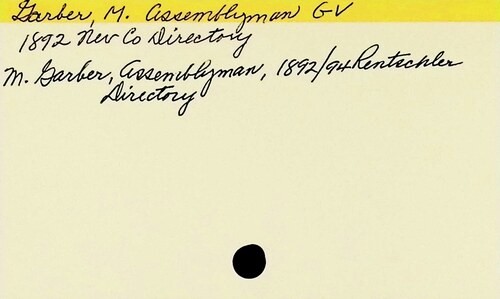 Garber, M. Assemblyman GV
1892 Nev Co Directory
M. Garber, Assemblyman, 1892/94 Rentschler
Directory